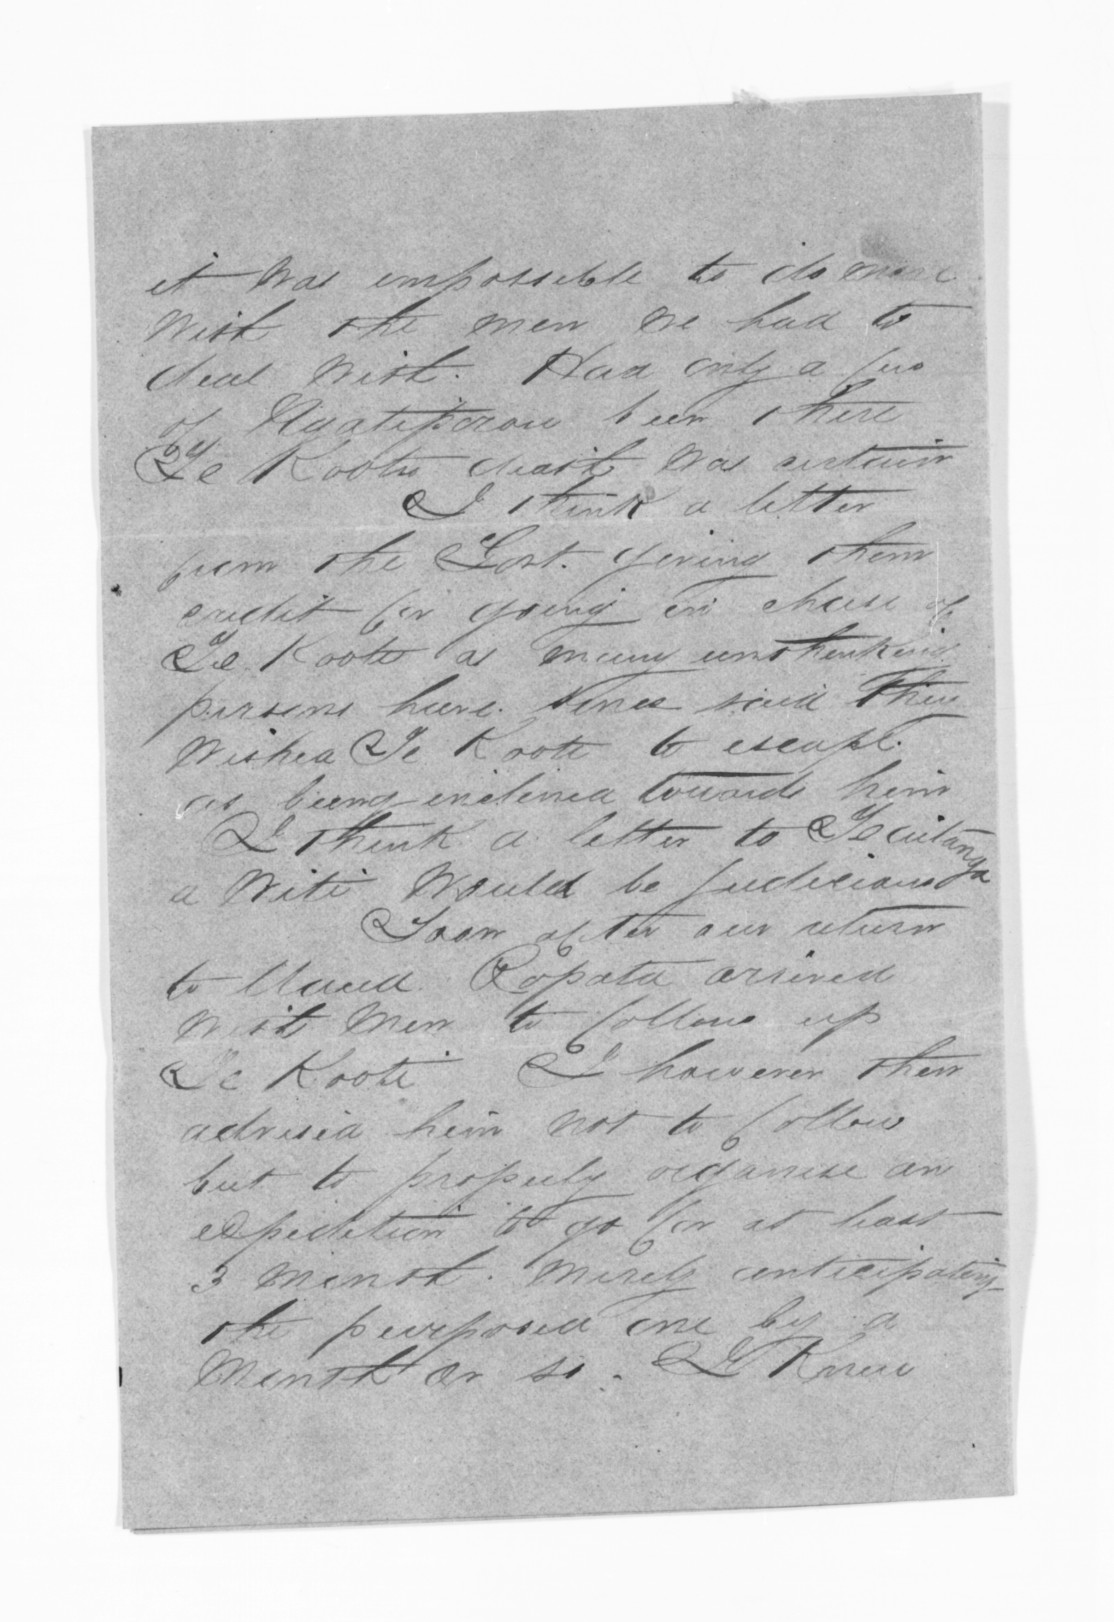 it was impossible to do more
with the men we had to
deal with. Had only a few
of Ngatiporou been there
Te Kootis death was certain
I think a letter
from the Govt. giving them
credit for going in chase of
Te Kooti as many unthinking
persons have since said they
wished Te Kooti to escape.
as being inclined towards him
I think a letter to Te
a Witi would be judicious
Soon after our return
to Maud. Ropata arrived
with men to follow up
Te Kooti I however then
advised him not to follow
but to properly organise an
expedition to go for at least
3 month. merely anticipating
the purposed one by a
Month or so. I Knew